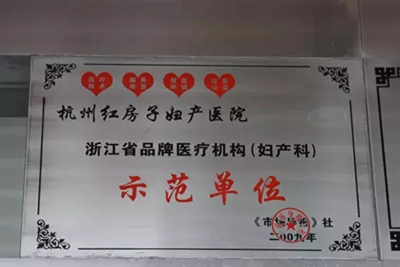 杭州红房子妇产医院
浙江省品牌医疗机构(妇产科)
示范单位
》社
二00九年